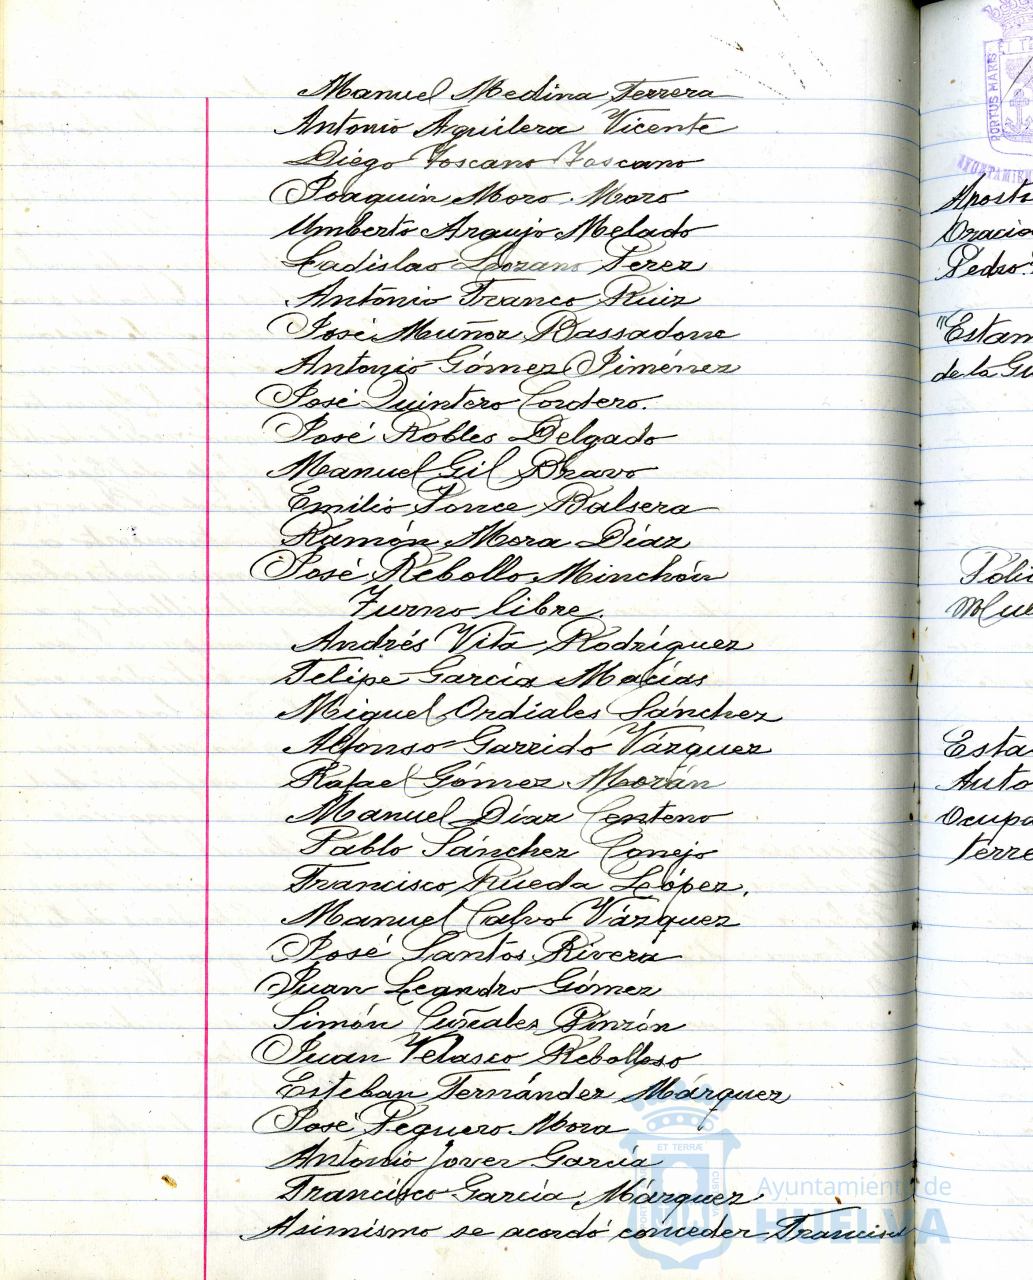 Manuel Medina Ferrera
Antonio Aguilera Vicente
Diego Toscano Toscano
Joaquin Moro Moro
Umberto Araujo Melado
Ladislao Lozano Perez
Antonio Franco Ruiz
José Muñoz Bassadone
Antonio Gómez Jiménez
José Quintero Cordero.
José Robles Delgado
Manuel Gil Bravo
Emilio Ponce Balsera
Ramón Mora Díaz
José Rebollo Minchón
Turno libre.
Andrés Vita Rodríguez
Felipe García Macías
Miguel Ordiales Sánchez
Alfonso Garrido Vázquez
Rafael Gómez Morán
Manuel Díaz Centeno
Pablo Sánchez Conejo
Francisco Rueda López.
Manuel Calvo Vázquez
José Santos Rivera
Juan Leandro Gómez
Simón Cuñales Pinzón
Juan Velasco Rebolloso
Esteban Fernández Márquez
José Peguero Mora
Antonio Jover García
Francisco García Márquez
Asimismo se acordó conceder Francisco
PORTUS MARIS
AYUNTAMIEN
Aposto
Oracio
Pedro
"Estam
de la Gu
Poli
Esta
Auto
Ocupa
terre
ET TERRÆ
Ayuntamiento de
HUELVA